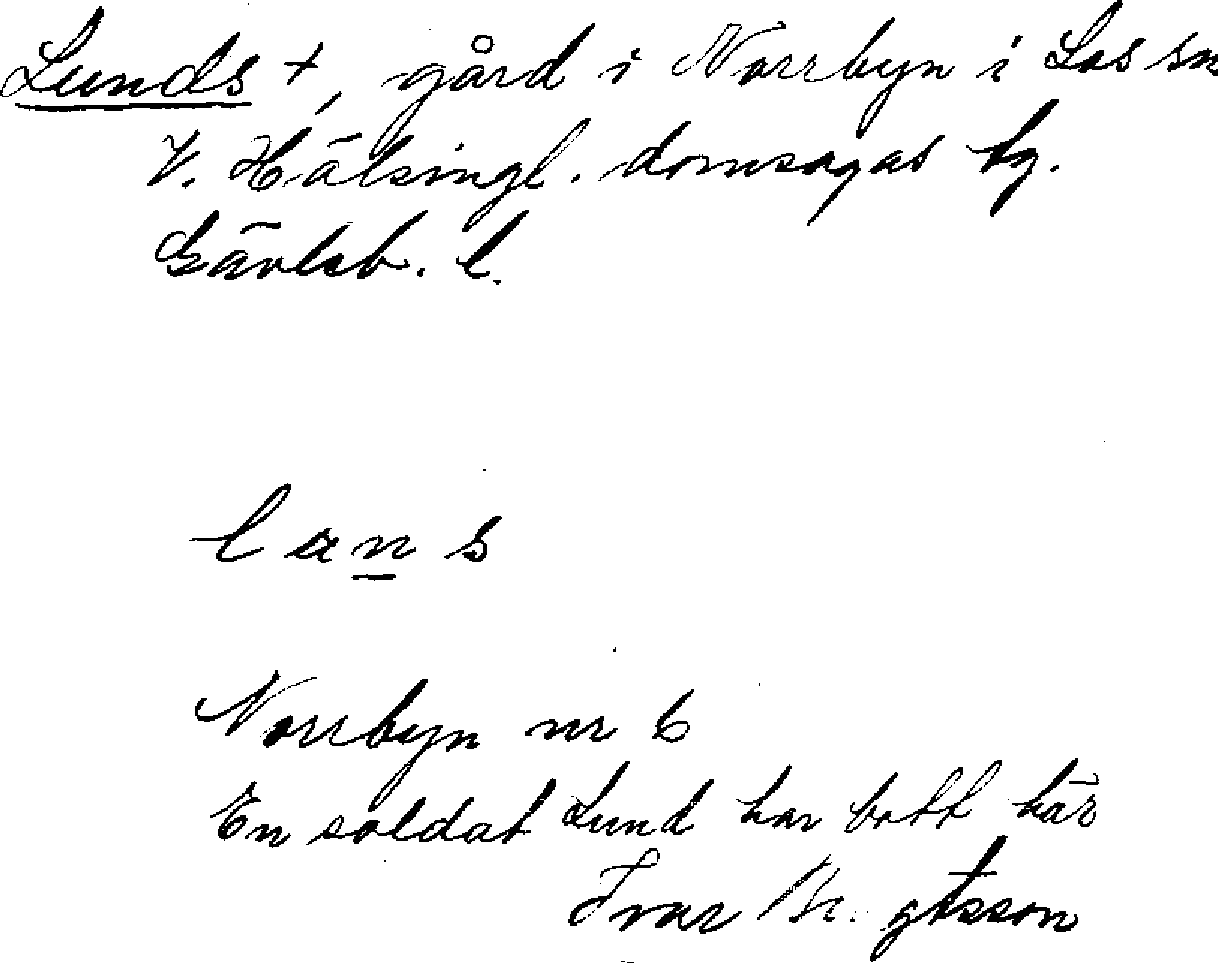 Lunds +, gård i Norrbyn i Los sn
V. Hälsingl. domsagas tg.
Gävleb. l.
l a n s
Norrbyn nr 6
En soldat Lund har bott här
Ivar